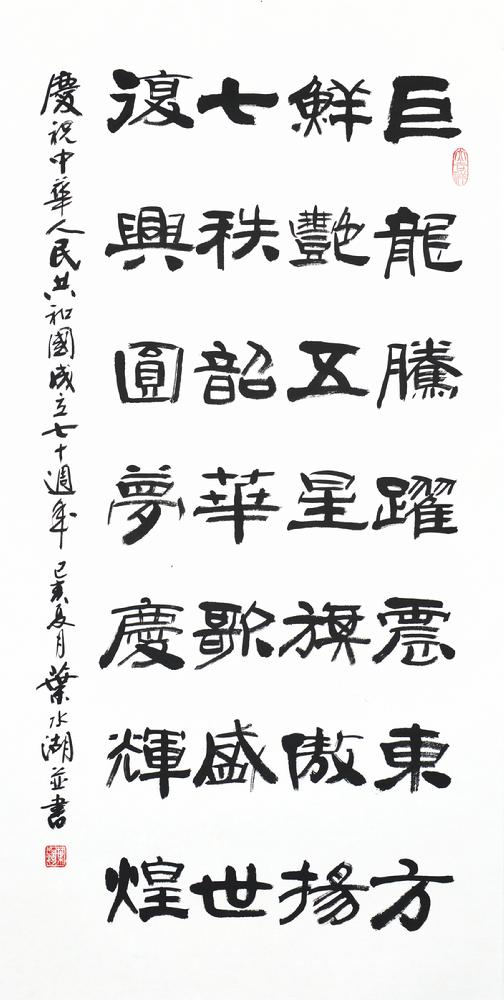 巨龍騰躍震東方
鮮豔五星旗傲揚
七秩韶華歌盛世
復興圓夢慶輝煌
慶祝中華人民共和國成立七十週年 己亥夏月葉水湖並書